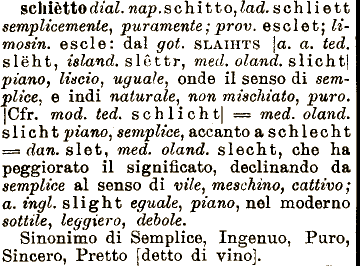 schiètto dial. nap. schitto, lad. schliett
semplicemente, puramente; prov. esclet; li-
mosin. escle: dal got. SLAIHTS [a. a. ted.
slëht, island. slêttr, med. oland. slicht]
piano, liscio, uguale, onde il senso di sem-
plice, e indi naturale, non mischiato, puro.
[Cfr. mod. ted. schlicht] = med. oland.
slicht piano, semplice, accanto a schlecht
= dan. slet, med. oland. slecht, che ha
peggiorato il significato, declinando da
semplice al senso di vile, meschino, cattivo;
a. ingl. slight eguale, piano, nel moderno
sottile, leggiero, debole.
Sinonimo di Semplice, Ingenuo, Puro,
Sincero, Pretto [detto di vino].